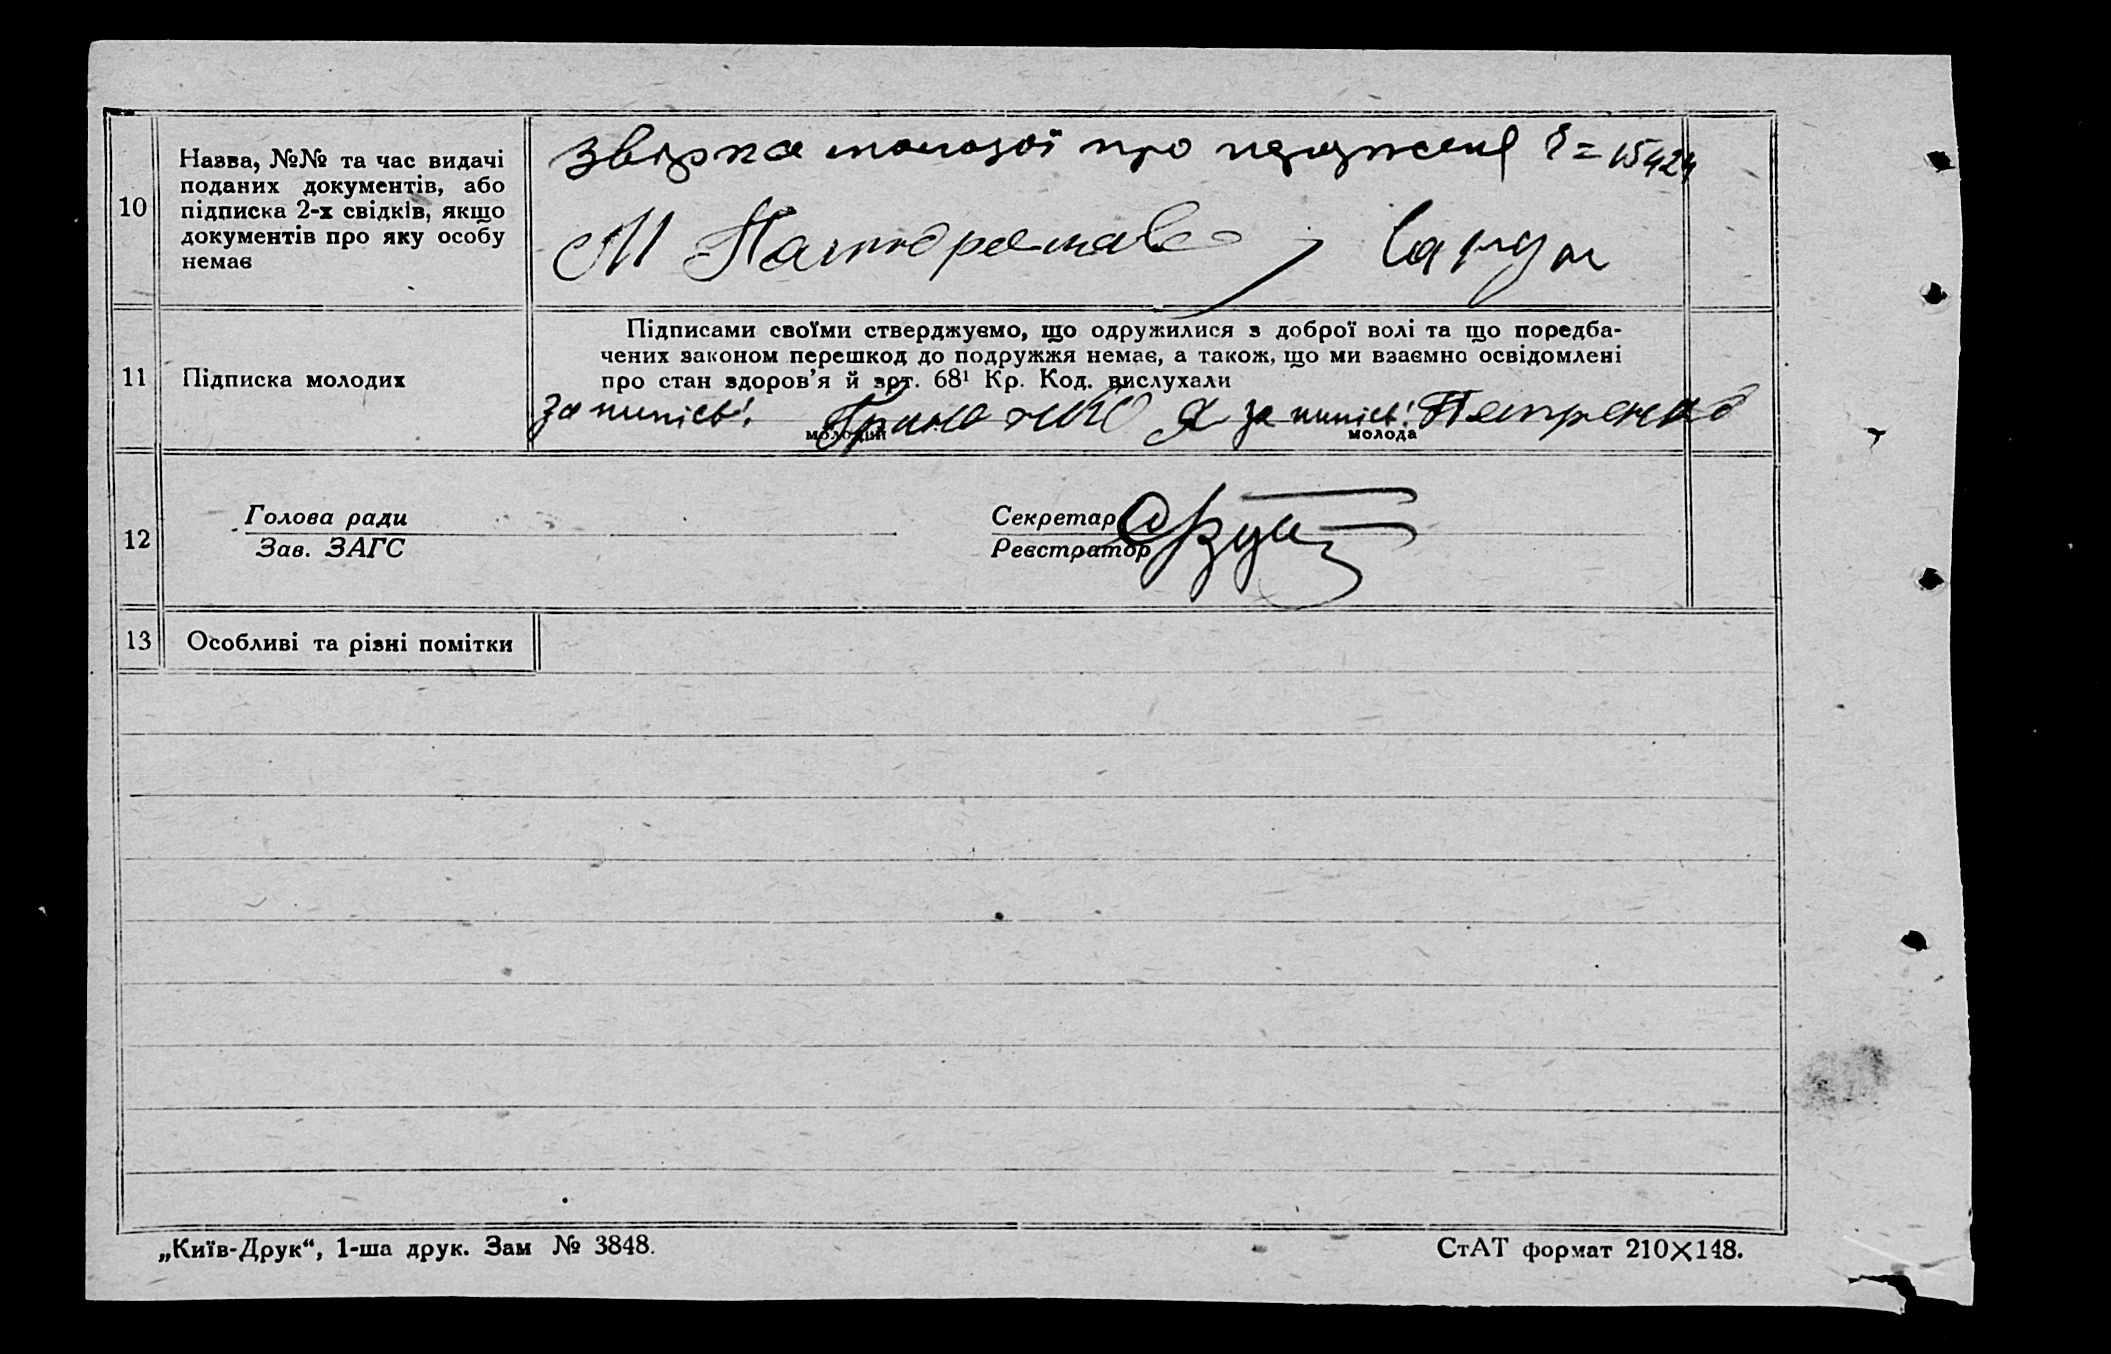 10
Назва, №№ та час видачі
поданих документів, або
підписка 2-х свідків, якщо
документів про яку особу
немає
молодої про 15424
М
11
Підписка молодих
Підписами своїми стверджуємо, що одружилися з доброї волі та що поредба-
чених законом перешкод до подружжя немає, а також, що ми взаємно освідомлені
про стан здоров'я й врт. 68¹ Кр. Код. вислухали
Петренко
молодий молода
12
Голова ради
Зав. ЗАГС
Секретар
Реєстратор
13
Особливі та різні помітки
„Київ-Друк“, 1-ша друк. Зам № 3848.
СтАТ формат 210×148.